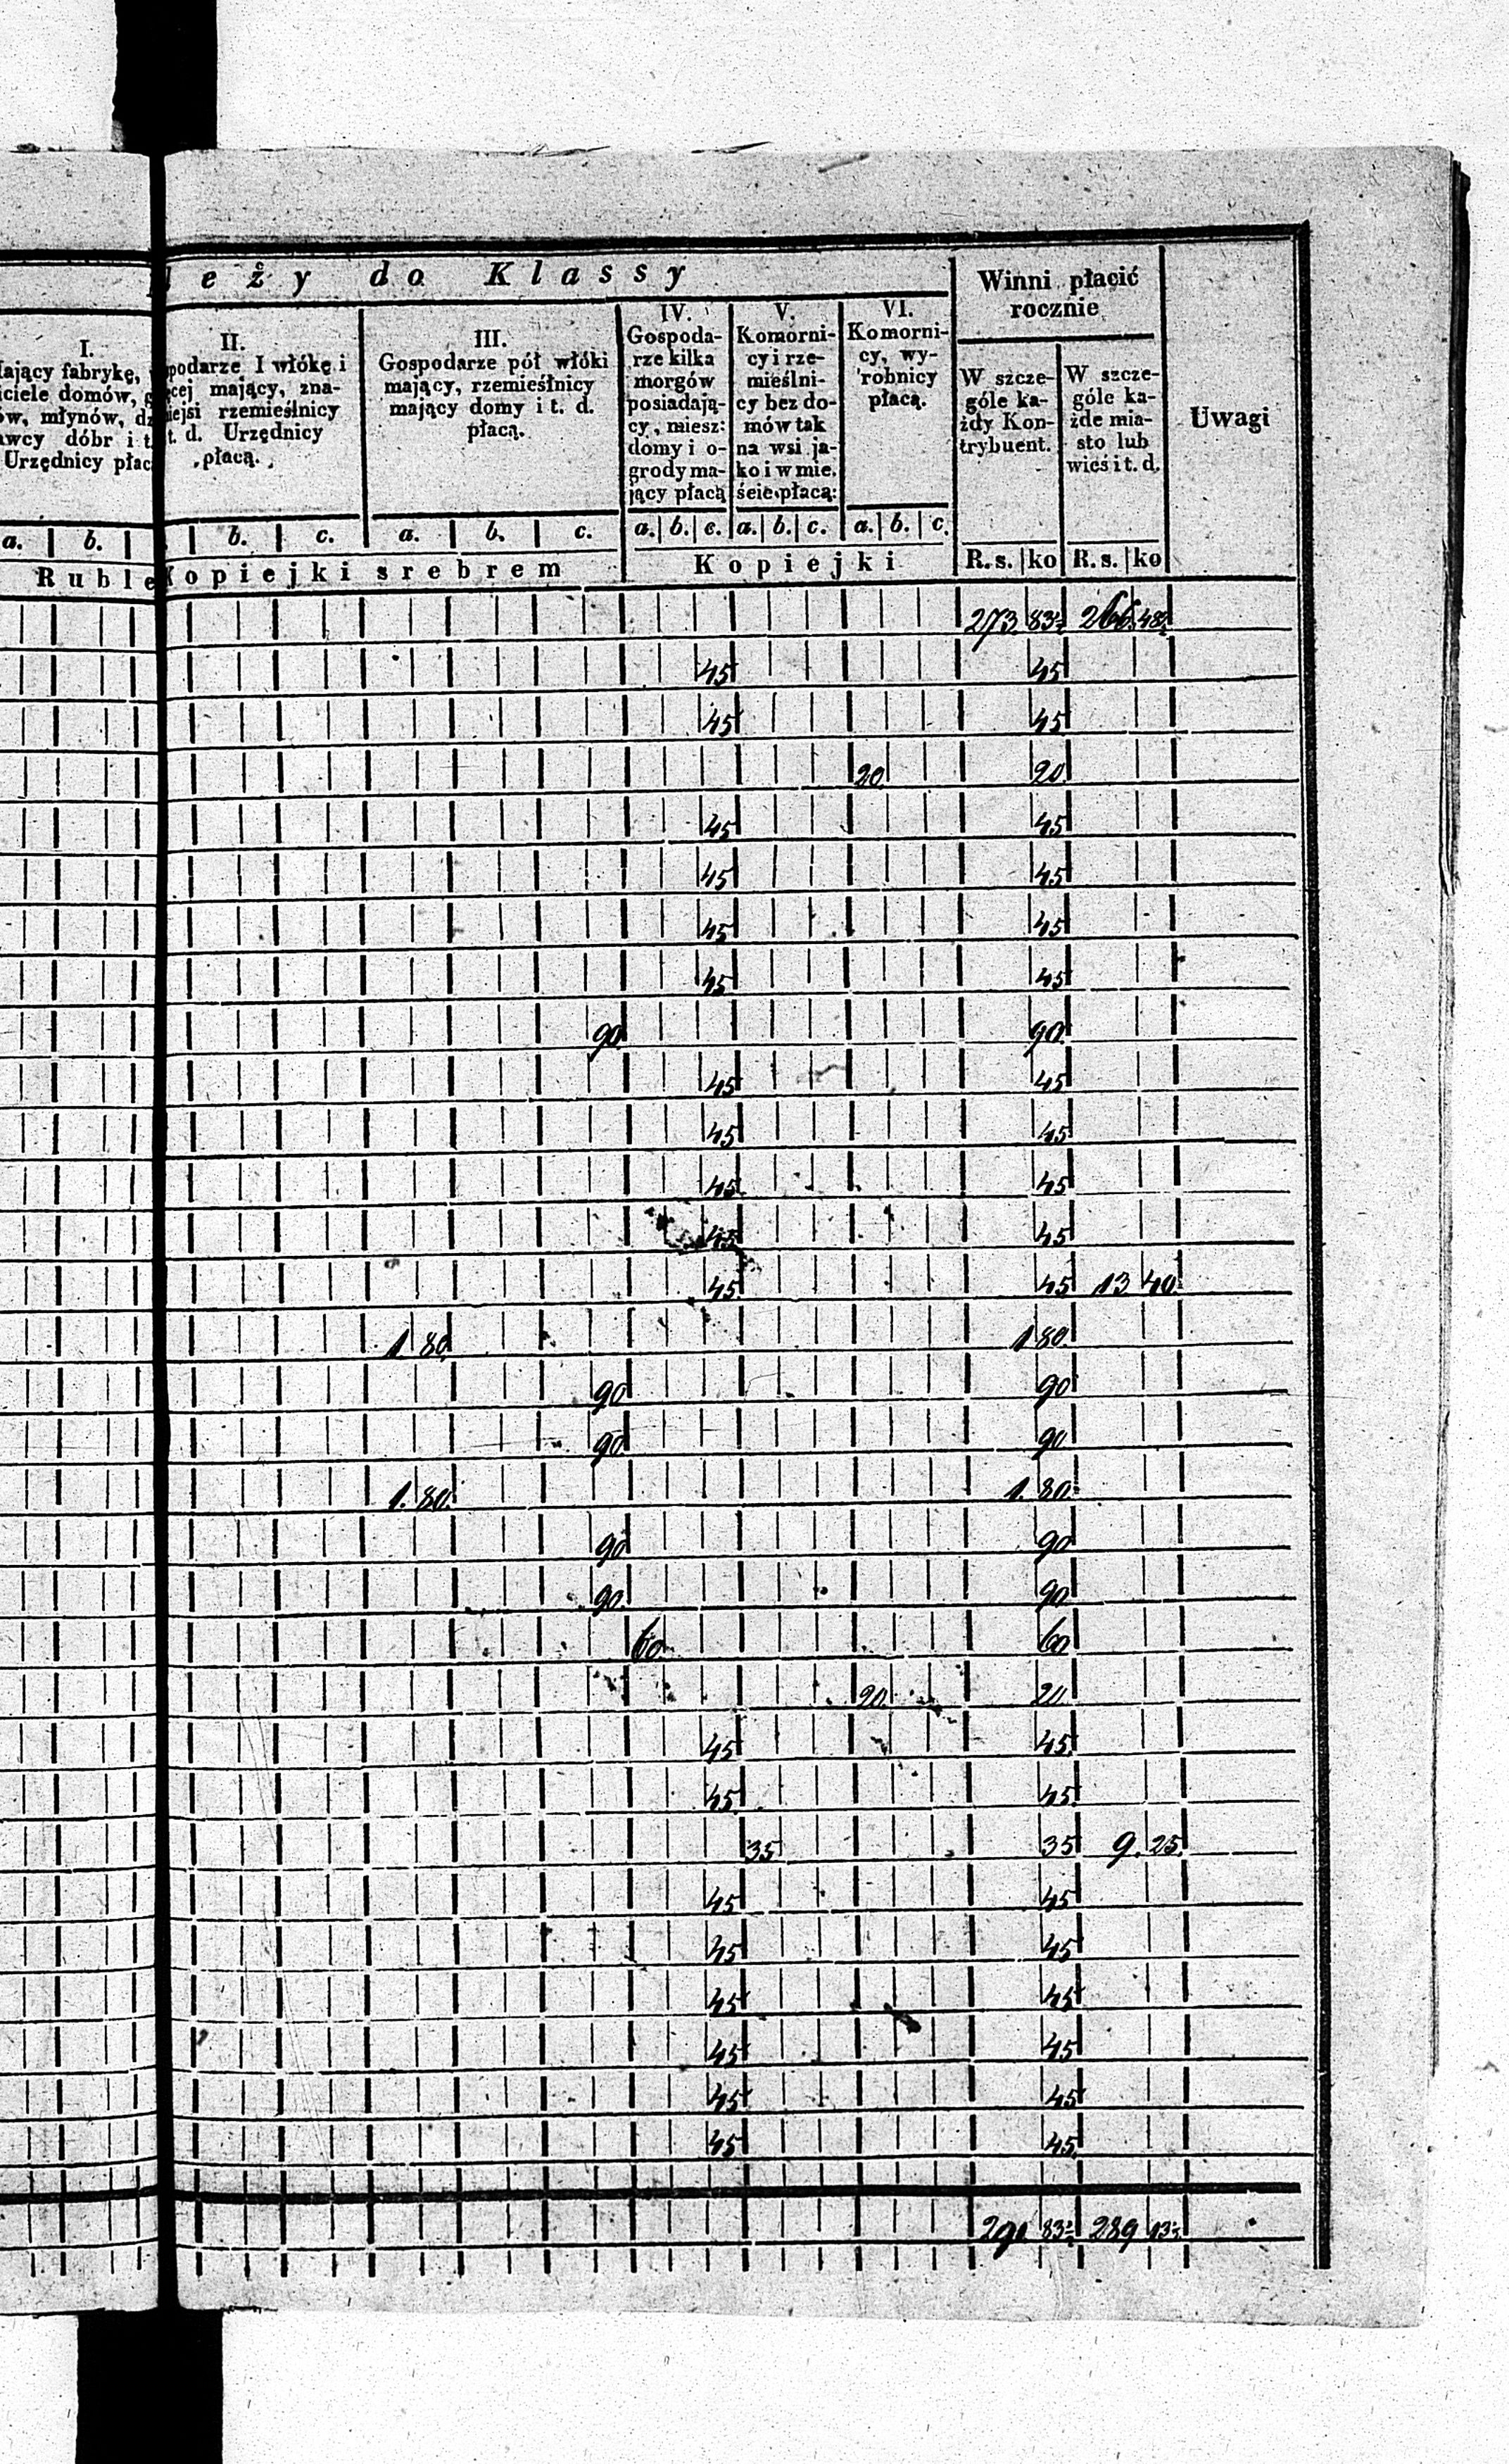 leży do Klassy
Winni płacić
rocznie
Uwagi
I.
fabrykę,
domów,
młynów,
dóbr i
Urzędnicy
II.
I włókę i
mający, zna-
rzemieślnicy
t. d. Urzędnicy
płacą.
III.
Gospodarze pół włóki
mający, rzemieślnicy
mający domy i t. d.
płacą.
IV.
Gospoda-
rze kilka
morgów
posiadają-
cy, miesz:
domy i o-
grody ma-
jący płacą
V.
Komorni-
cy i rze-
mieślni-
cy bez do-
mów tak
na wsi ja-
ko i w mie.
ście płacą:
VI.
Komorni-
cy, wy-
robnicy
płacą.
W szcze-
góle ka-
żdy Kon-
trybuent.
W szcze-
góle ka-
żde mia-
sto lub
wieś i t. d.
a. b. b. c. a. b. c. a. b. c. a. b. c. a. b. c. R. s. ko R. s. ko
Ruble Kopiejki srebrem Kopiejki
273 83½ 266 48½
45 45
45 45
20 20
45 45
45 45
45 45
45 45
90 90
45 45
45 45
45 45
45 45
45 45 13 40
1 80 1 80
90 90
90 90
1. 80. 1. 80.
90 90
90 90
60 60
20 20
45 45
45 45
35 35 9. 25.
45 45
45 45
45 45
45 45
45 45
45 45
291 83½ 289 13½